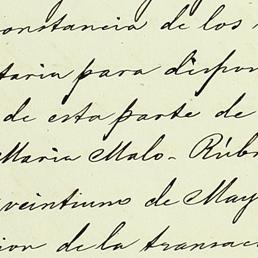 onstancia de los
taria para dispon
de esta parte de
Maria Malo - Rúbr
veintiuno de May
ion de la transac